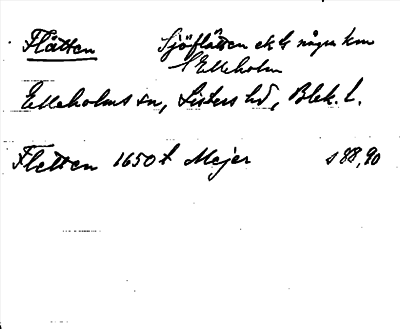 Flätten Sjöflätten ek ls några km
l Elleholm
Elleholms sn, Listers hd, Blek. l.
Fletten 1650 t Mejer s 88, 90